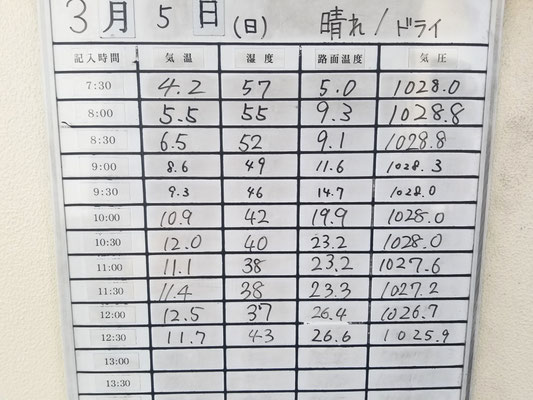 3月 5日 (日) 晴れ / ドライ
記入時間 気温 湿度 路面温度 気圧
7:30 4.2 57 5.0 1028.0
8:00 5.5 55 9.3 1028.8
8:30 6.5 52 9.1 1028.8
9:00 8.6 49 11.6 1028.3
9:30 9.3 46 14.7 1028.0
10:00 10.9 42 19.9 1028.0
10:30 12.0 40 23.2 1028.0
11:00 11.1 38 23.2 1027.6
11:30 11.4 38 23.3 1027.2
12:00 12.5 37 26.4 1026.7
12:30 11.7 43 26.6 1025.9
13:00
13:30